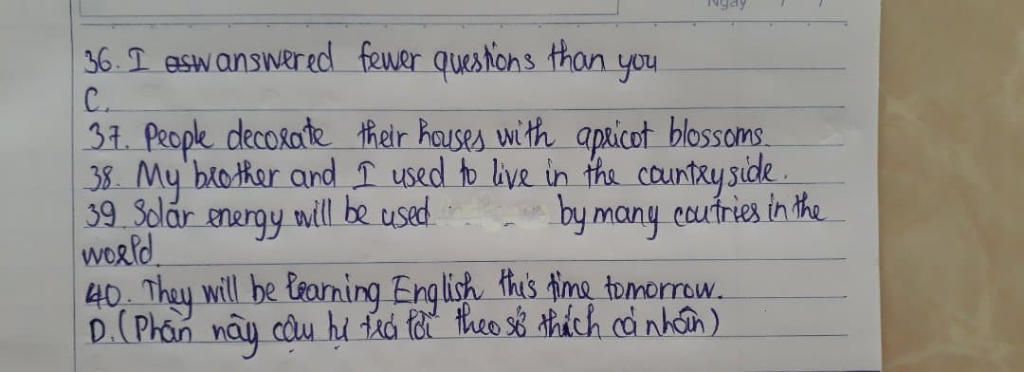 Ngày / /
36. I answered fewer questions than you
C.
37. People decorate their houses with apricot blossoms.
38. My brother and I used to live in the countryside.
39. Solar energy will be used by many coutries in the
world.
40. They will be learning English this time tomorrow.
D. (Phần này cậu tự trả lời theo sở thích cá nhân)